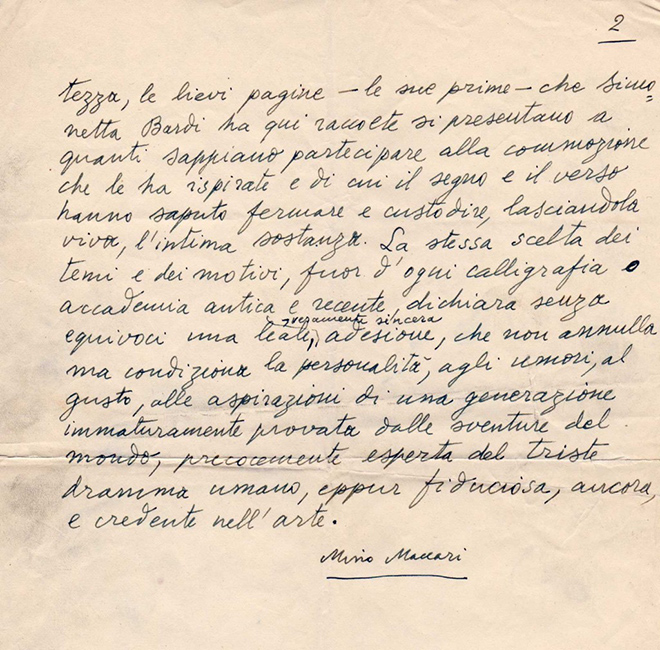 2
tezza, le lievi pagine – le sue prime – che Simo=
netta Bardi ha qui raccolte si presentano a
quanti sappiano partecipare alla commozione
che le ha ispirate e di cui il segno e il verso
hanno saputo fermare e custodire, lasciandola
viva, l'intima sostanza. La stessa scelta dei
temi e dei motivi, fuor d'ogni calligrafia o
accademia antica e recente, dichiara senza
veramente sincera
equivoci una leale, adesione, che non annulla
ma condiziona la personalità, agli umori, al
gusto, alle aspirazioni di una generazione
immaturamente provata dalle sventure del
mondo, precocemente esperta del triste
dramma umano, eppur fiduciosa, ancora,
e credente nell'arte.
Mino Maccari